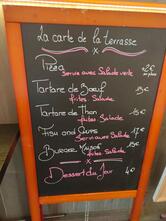 La carte de la terrasse
x
Pizza 12€
Servie avec Salade verte
Tartare de Bœuf 15€
frites Salade
Tartare de Thon 15€
frites Salade
Fish and Chips 17€
Servi avec Salade
Burger
frites Salade
x
Dessert du Jour 6€